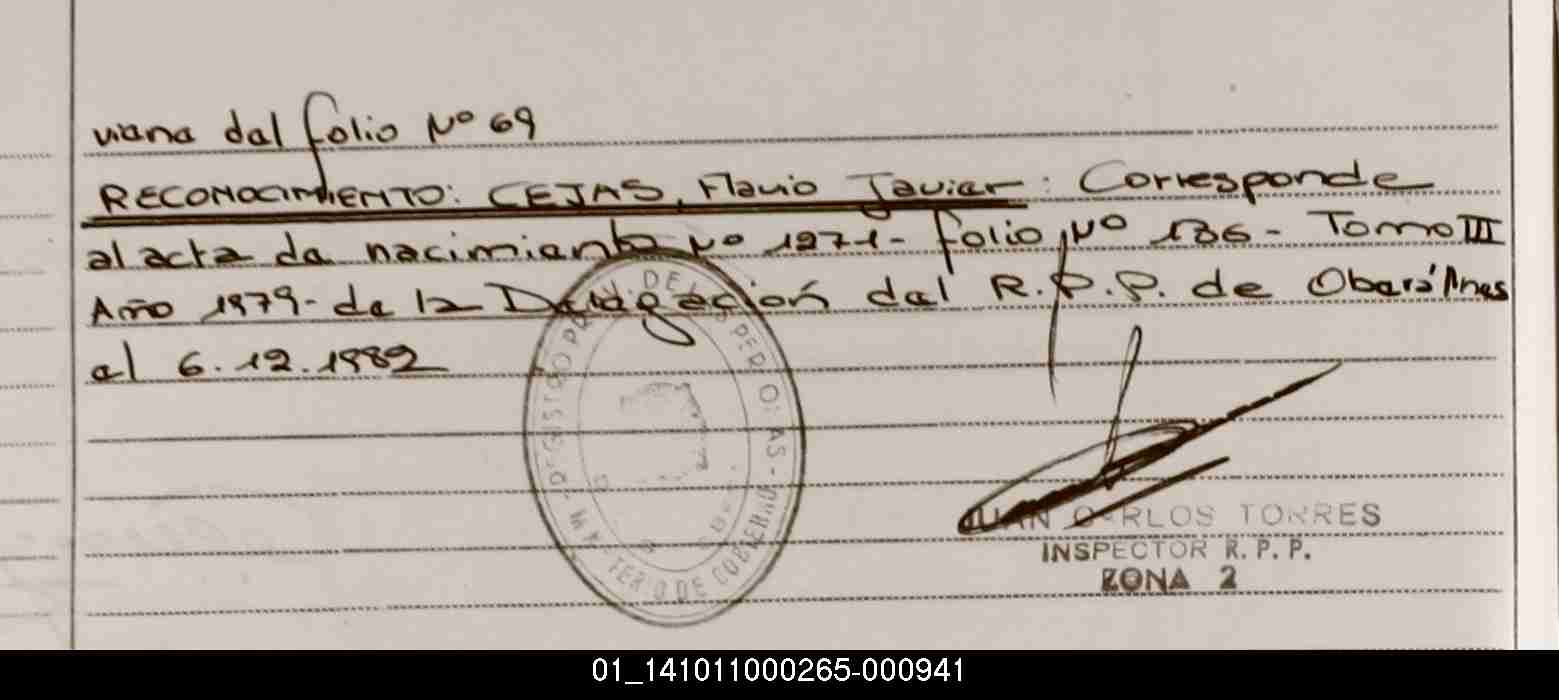 viene del folio Nº 69
RECONOCIMIENTO: CEJAS, Flavio Javier: Corresponde
al acta de nacimiento Nº 1271- folio Nº 136 - Tomo III
Año 1979- de la Delegación del R.P.P. de Oberá, Mnes
el 6.12.1982
REGISTRO PROV. DE LAS PERSONAS - MINISTERIO DE GOBIERNO
JUAN CARLOS TORRES
INSPECTOR R.P.P.
ZONA 2
01_141011000265-000941